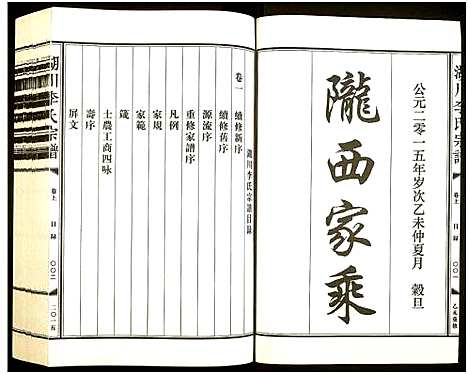 公元二零一五年岁次乙未仲夏月 榖旦
隴西家乘
湖川李氏宗譜
卷上
目録
〇〇一
乙未重修
湖川李氏宗譜目録
卷一
續修新序
續修舊序
源流序
重修家譜序
凡例
家規
家範
箴
士農工商四咏
壽序
屏文
湖川李氏宗譜
卷上
目録
〇〇二
二〇一五